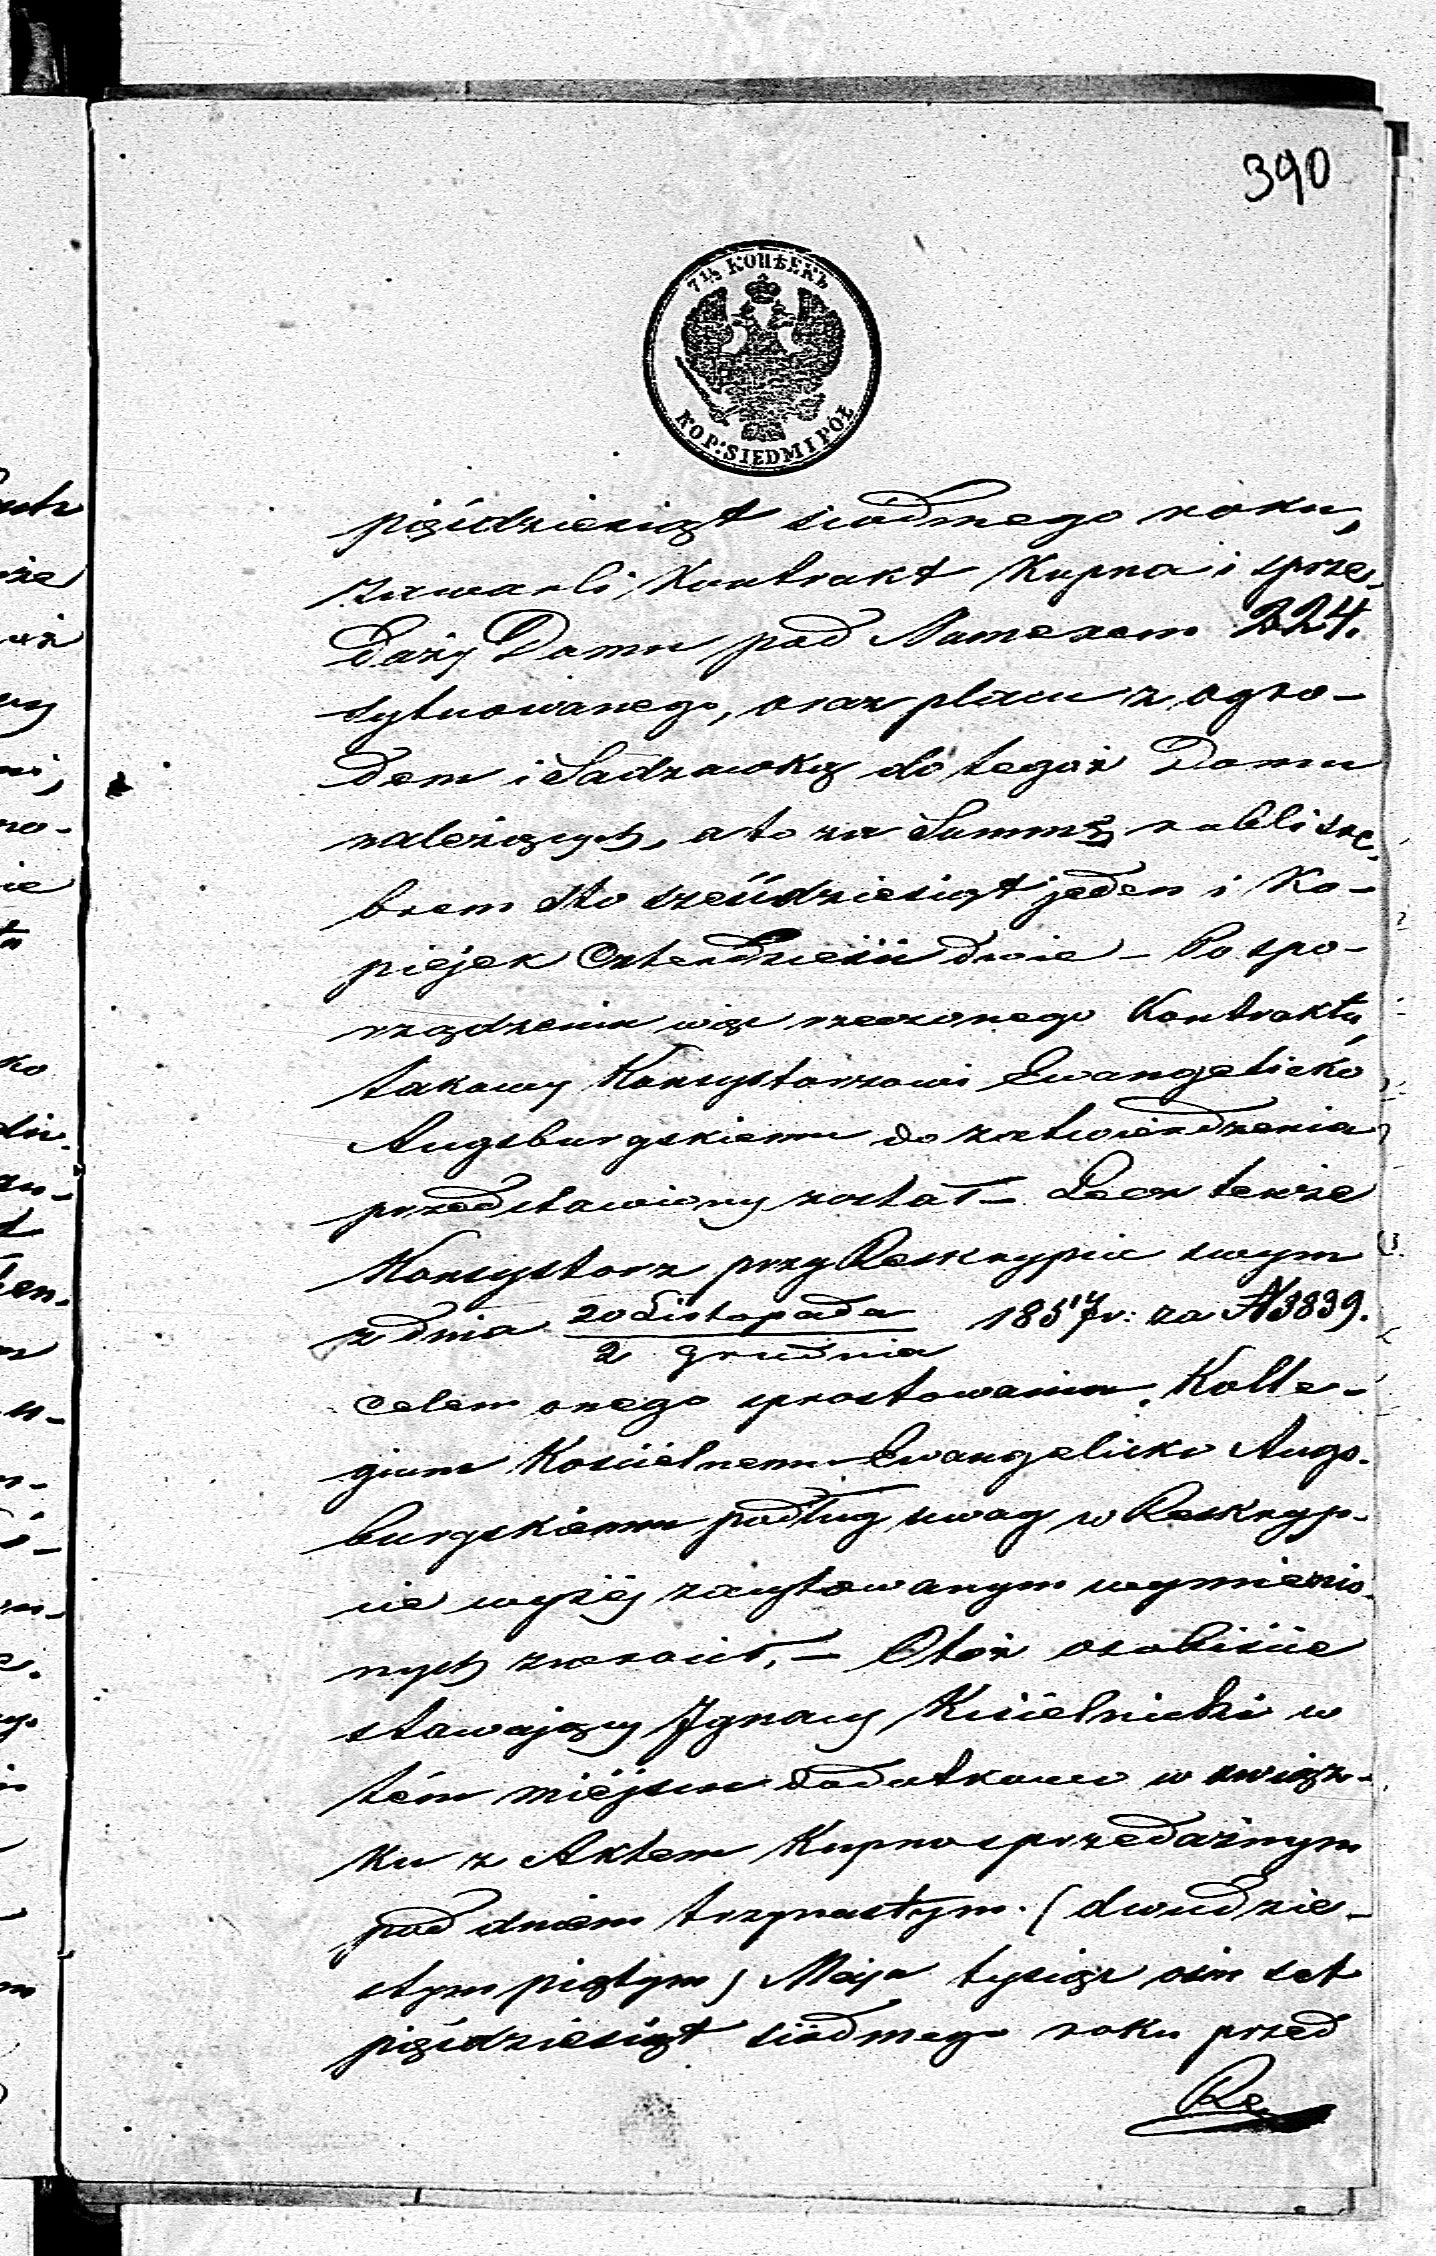 390
7½ КОПѢЕКЪ
KOP: SIEDM I PÓŁ
pięćdziesiąt siódmego roku,
zawarli Kontrakt Kupna i sprze-
daży Domu pod Numerem 224.
sytuowanego, oraz placu z ogro-
dem i Sadzawką do tegoż Domu
należących, a to za Summę rubli sre-
brem sto sześćdziesiąt jeden i Ko-
piejek Czterdzieści dwie – Po spo-
rządzeniu więc rzeczonego Kontraktu,
takowy Konsystorzowi Ewangelicko
Augsburgskiemu do zatwierdzenia
przedstawiony został – Lecz tenże
Konsystorz przy Reskrypcie swym
z dnia 20 Listopada / 2 Grudnia 1857 r: za N 3839.
celem onego sprostowania Kolle-
gium Kościelnemu Ewangelicko Augs-
burgskiemu podług uwag w Reskryp-
cie wyżej zacytowanym wymienio-
nych zwrócił, – Otóż osobiście
stawający Ignacy Kisielnicki w
tém miéjscu dodatkowo w związ-
ku z Aktem Kupno sprzedażnym
pod dniem trzynastym (dwudzie-
stym piątym) Maja tysiąc ośm set
pięćdziesiąt siódmego roku przed
Re